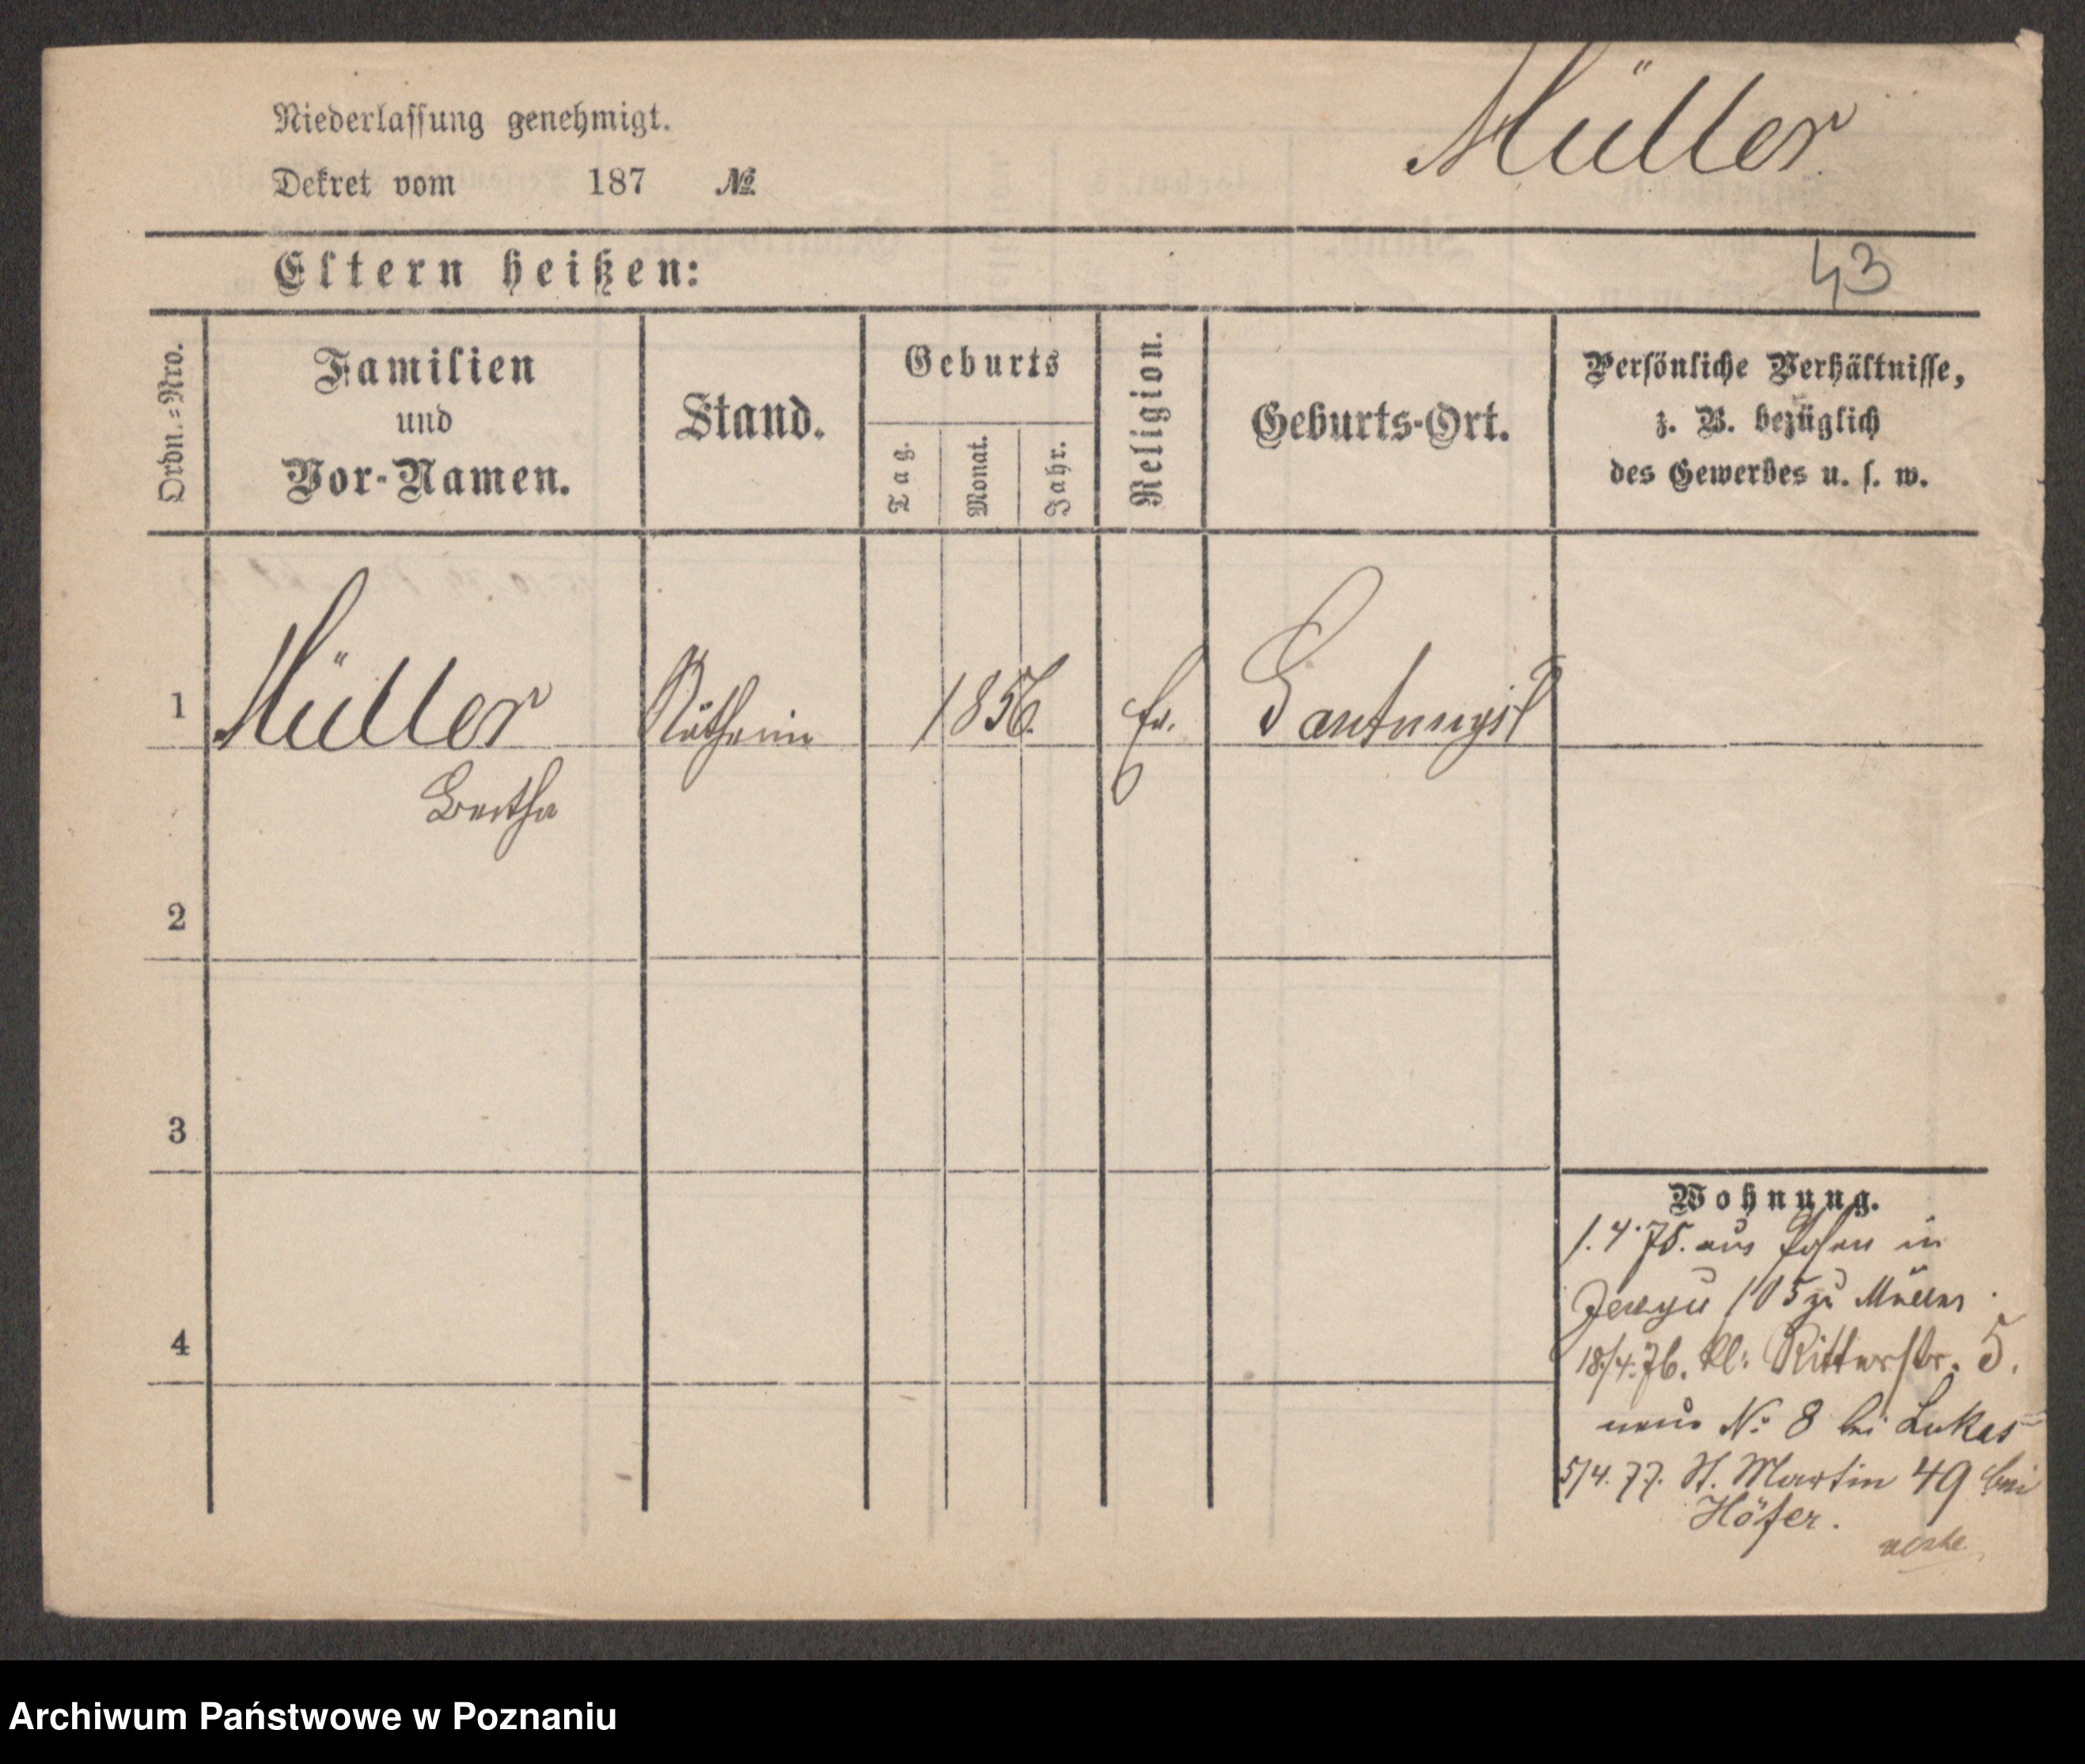 Niederlassung genehmigt.
Müller
Dekret vom 187 №
Eltern heißen:
43
Ordn.=Nro.
Familien
und
Vor-Namen.
Stand.
Geburts
Tag.
Monat.
Jahr.
Religion.
Geburts-Ort.
Persönliche Verhältnisse,
z. B. bezüglich
des Gewerbes u. s. w.
1 Müller Nätherin 1856. ev.
Bertha
2
3
4
Wohnung.
1.4.75. aus Posen in
105 zu Müller
18/4.76. kl: Ritterstr. 5.
neue No 8 bei Lukas
5/4.77. St. Martin 49 bei
Höfer.
Archiwum Państwowe w Poznaniu